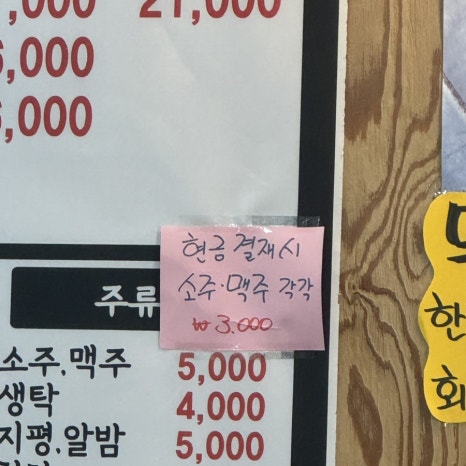 21,000
6,000
6,000
현금 결재시
소주·맥주 각각
₩3.000
주류
소주.맥주 5,000
생탁 4,000
지평.알밤 5,000
한
회